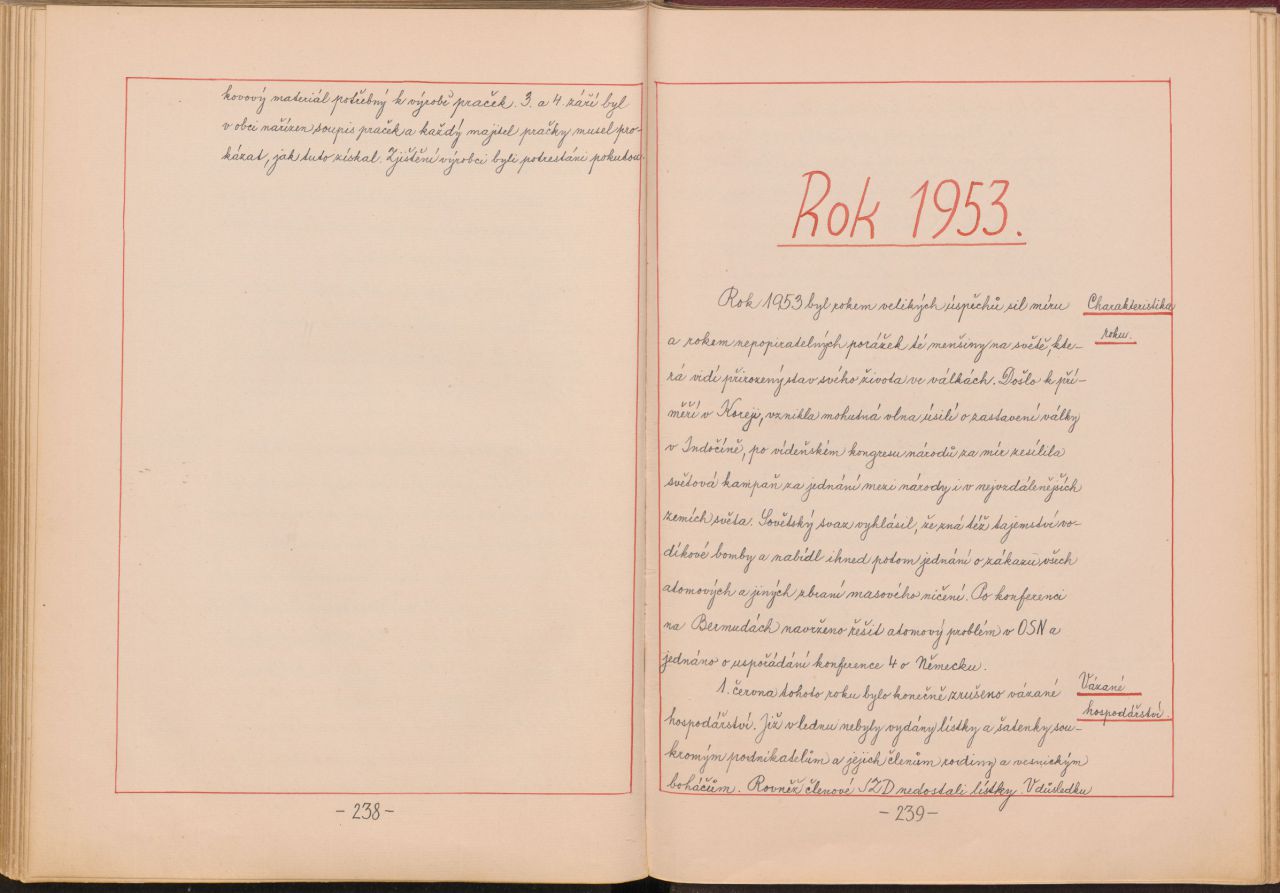 kovový materiál potřebný k výrobě praček. 3. a 4. září byl
v obci nařízen soupis praček a každý majitel pračky musel pro-
kázat, jak tuto získal. Zjištění výrobci byli potrestáni pokutou.
- 238 -
Rok 1953.
Rok 1953 byl rokem velikých úspěchů sil míru
Charakteristika
roku.
a rokem nepopiratelných porážek té menšiny na světě, kte-
rá vidí přirozený stav svého života ve válkách. Došlo k pří-
měří v Koreji, vznikla mohutná vlna úsilí o zastavení války
v Indočíně, po vídeňském kongresu národů za mír zesílila
světová kampaň za jednání mezi národy i v nejvzdálenějších
zemích světa. Sovětský svaz vyhlásil, že zná též tajemství vo-
díkové bomby a nabídl ihned potom jednání o zákazu všech
atomových a jiných zbraní masového ničení. Po konferenci
na Bermudách navrženo řešit atomový problém v OSN a
jednáno o uspořádání konference 4 o Německu.
1. června tohoto roku bylo konečně zrušeno vázané
Vázané
hospodářství.
hospodářství. Již v lednu nebyly vydány lístky a šatenky sou-
kromým podnikatelům a jejich členům rodiny a vesnickým
boháčům. Rovněž členové JZD nedostali lístky. V důsledku
- 239 -